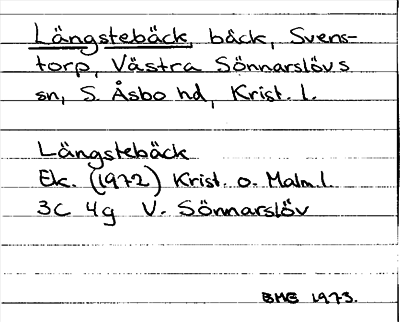 Längstebäck, bäck, Svens-
torp, Västra Sönnarslövs
sn, S. Åsbo hd, Krist. l.
Längstebäck
Ek. (1972) Krist. o. Malm. l.
3C 4g V. Sönnarslöv
BME 1973.